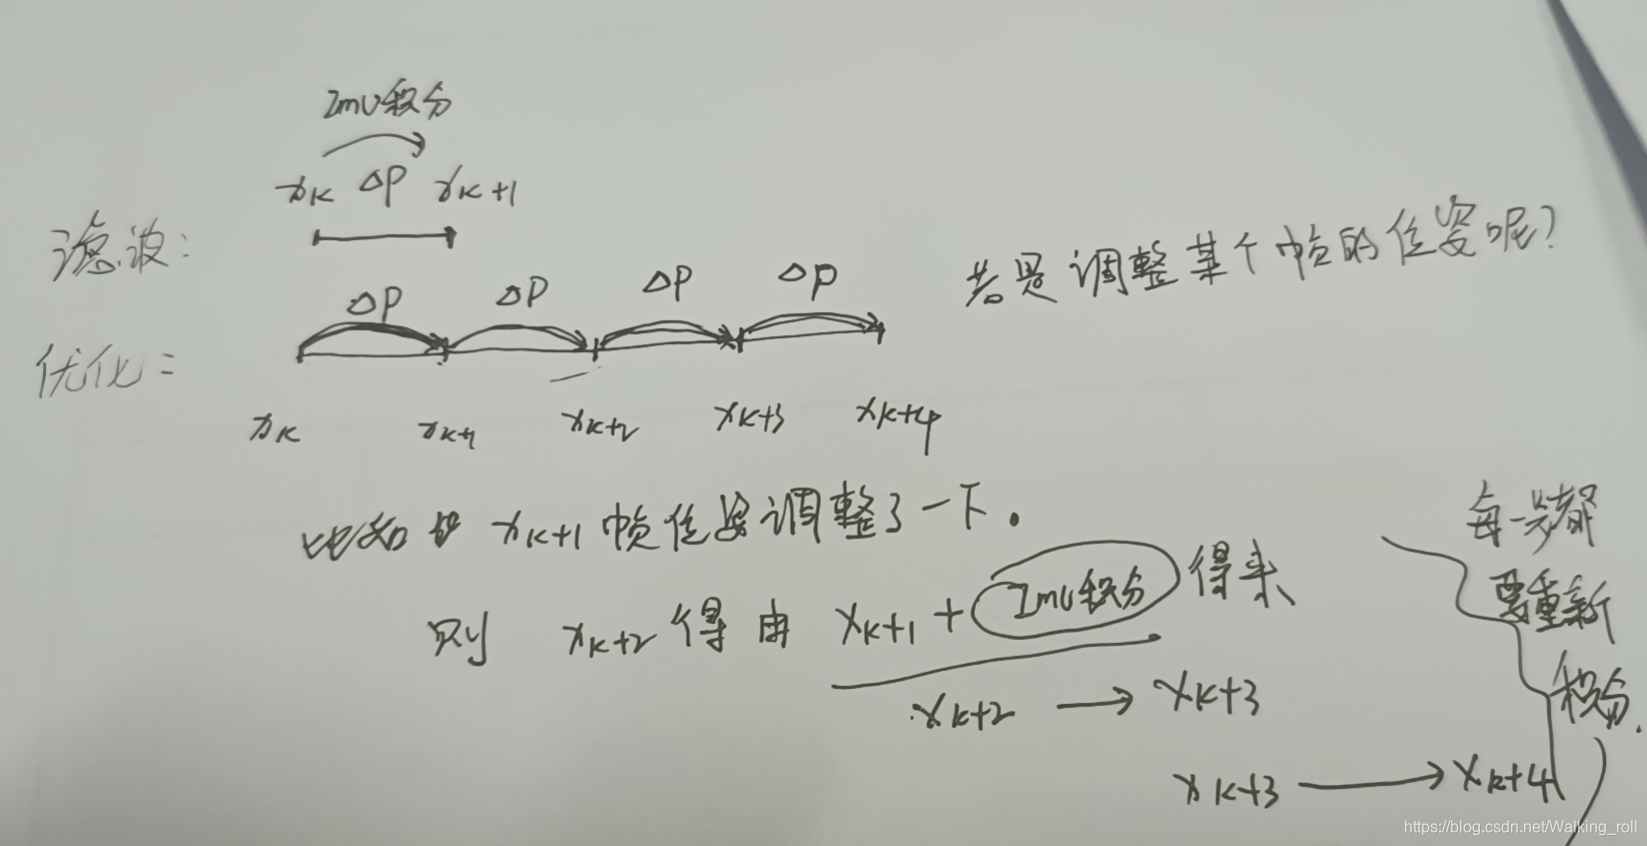 IMU积分
xk ΔP xk+1
滤波:
ΔP ΔP ΔP ΔP
若是调整某个帧的位姿呢?
优化:
xk xk+1 xk+2 xk+3 xk+4
比如 xk+1帧位姿调整了一下.
则 xk+2得由 xk+1 + IMU积分 得来
xk+2 → xk+3
xk+3 → xk+4
每一步都
要重新
积分.
https://blog.csdn.net/Walking_roll